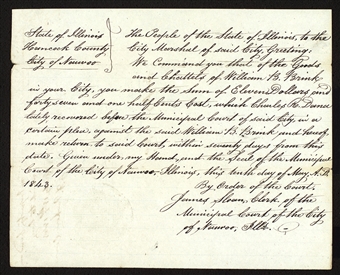 State of Illinois
Hancock County
City of Nauvoo
The People of the State of Illinois, to the
City Marshal of said City, Greeting:
We Command you that of the Goods
and Chattels of William B. Brink
in your City, you make the Sum of Eleven Dollars and
forty seven and one half Cents Cost, which Charles R. Dana
lately recovered before the Municipal Court of said City in a
certain plea against the said William B. Brink and hereof
make return to said Court, within seventy days from this
date. Given under my Hand, and the Seal of the Municipal
Court of the City of Nauvoo, Illinois, this tenth day of May, A.D.
1843.
By Order of the Court.
James Sloan, Clerk of the
Municipal Court of the City
of Nauvoo, Ills.